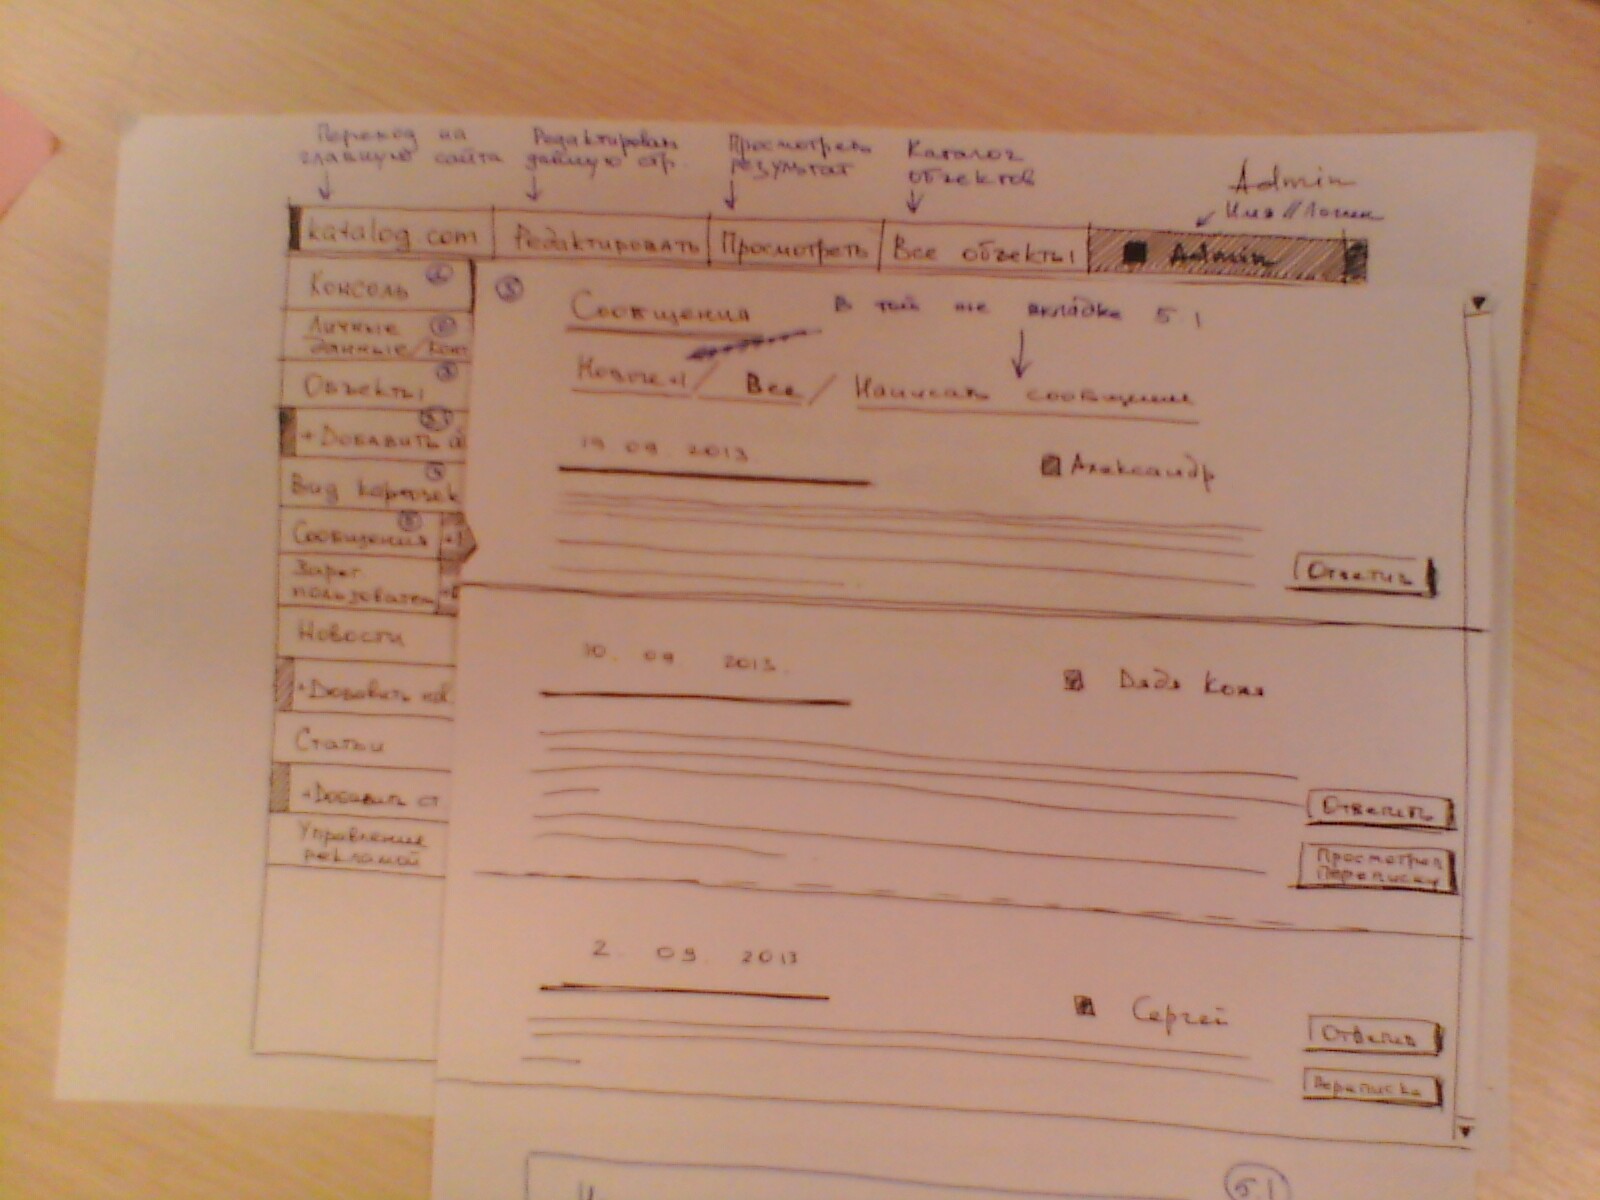 Переход на
главную сайта
Редактирован
данную стр.
Просмотреть
результат
Каталог
объектов
Admin
Имя//Логин
katalog.com
Редактировать
Просмотреть
Все объекты
Admin
Консоль
Личные
данные/конт
Объекты
3.1
+Добавить о
Вид карточек
Сообщения
+1
Зарег
пользовател
Новости
+Добавить но
Статьи
+Добавить ст
Управление
рекламой
5
Сообщения
В той же вкладке 5.1
Новое+1 / Все / Написать сообщение
19 09 2013
Александр
Ответить
10. 09 2013.
Дядя Коля
Ответить
Просмотреть
Переписку
2. 09. 2013
Сергей
Ответить
Переписка
5.1